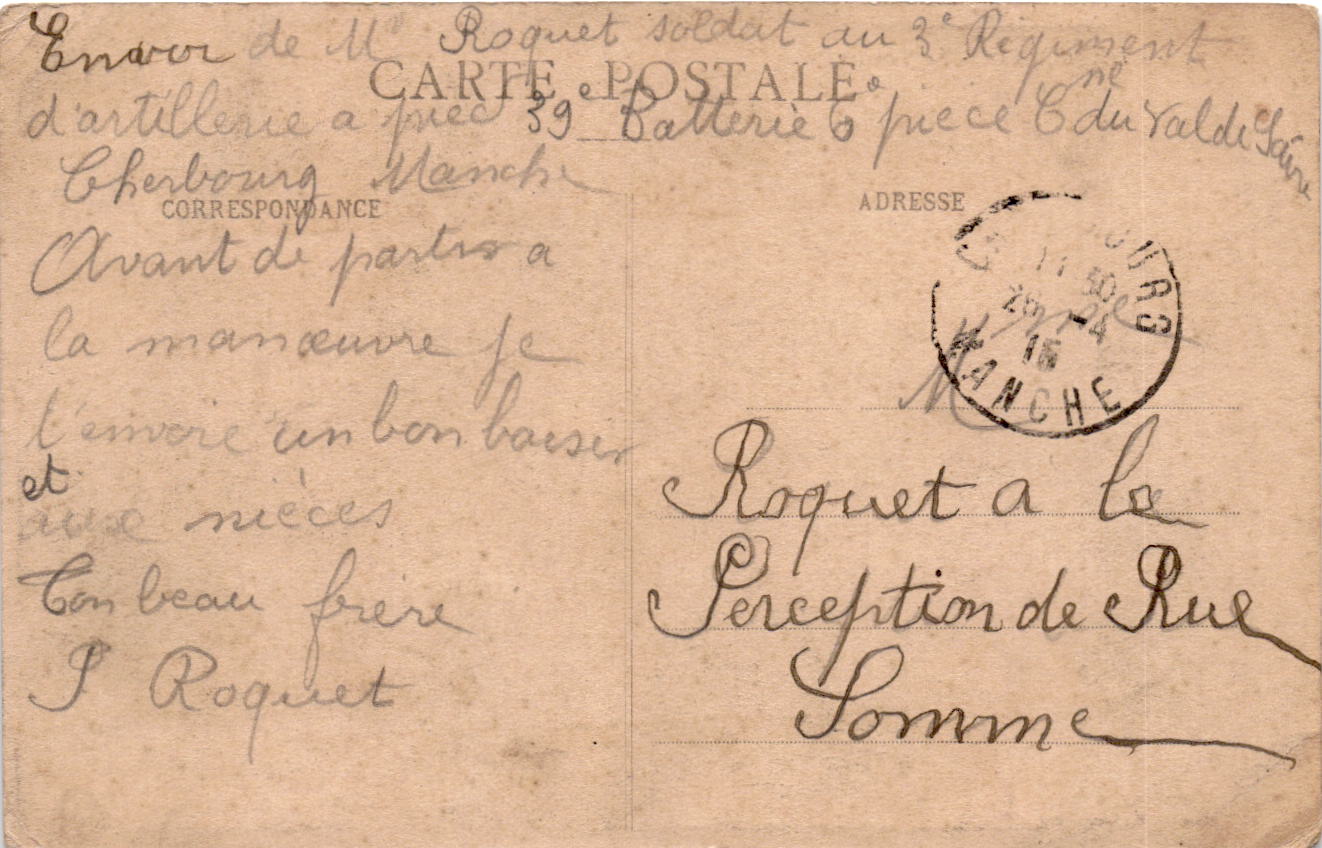 Envoi de Mr Roquet soldat au 3e Régiment
CARTE POSTALE
d'artillerie a pied 39e Batterie 6 piece Cne du Val de Saire
Cherbourg Manche
CORRESPONDANCE
Avant de partir a
la manœuvre je
t'envoie un bon baiser
et
aux nièces
Ton beau frère
P Roquet
ADRESSE
OURG
11 30
28 -4
15
MANCHE
M
Roquet a la
Perception de Rue
Somme